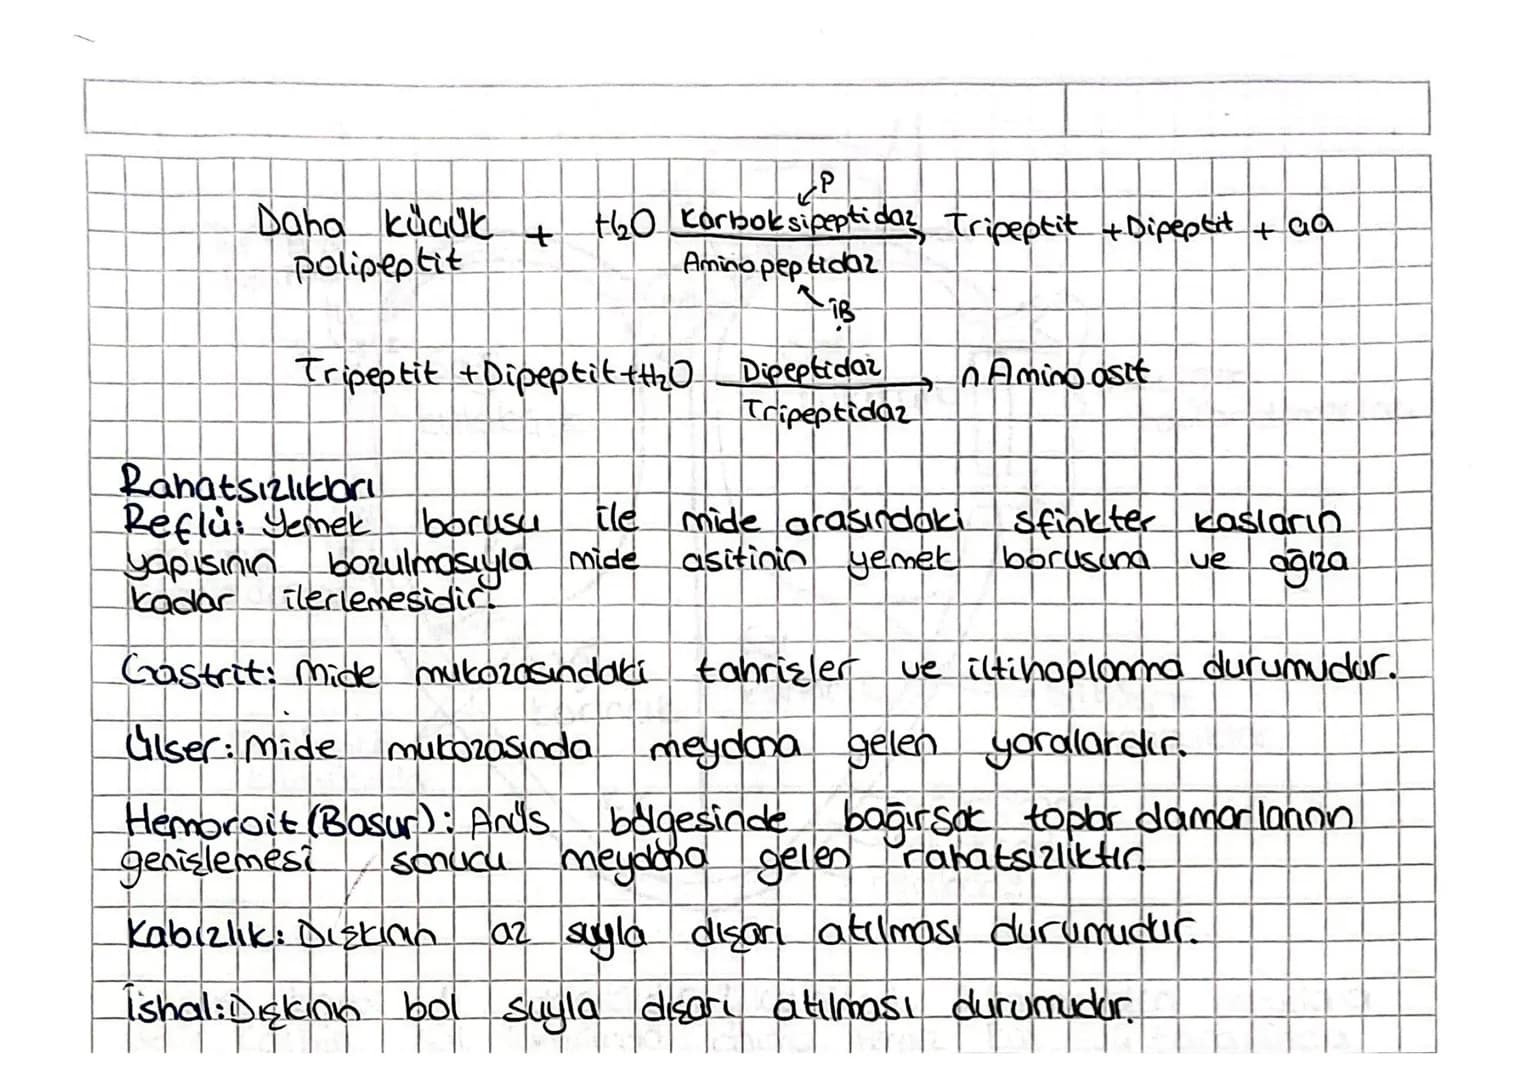 P
Daha küçük + H₂O Karboksipeptidaz Tripeptit + Dipeptit + aa
polipeptit Aminopeptidaz
İB
Tripeptit + Dipeptit + H₂O Dipeptidaz n Amino asit
Tripeptidaz
Rahatsızlıkları
Reflü: Yemek borusu ile mide arasındaki sfinkter kasların
yapısının bozulmasıyla mide asitinin yemek borusuna ve ağıza
kadar ilerlemesidir.
Gastrit: Mide mukozasındaki tahrişler ve iltihaplanma durumudur.
Ülser: Mide mukozasında meydana gelen yaralardır.
Hemoroit (Basur): Anüs bölgesinde bağırsak toplar damarlarının
genişlemesi sonucu meydana gelen rahatsızlıktır.
Kabızlık: Dışkının az suyla dışarı atılması durumudur.
İshal: Dışkının bol suyla dışarı atılması durumudur.